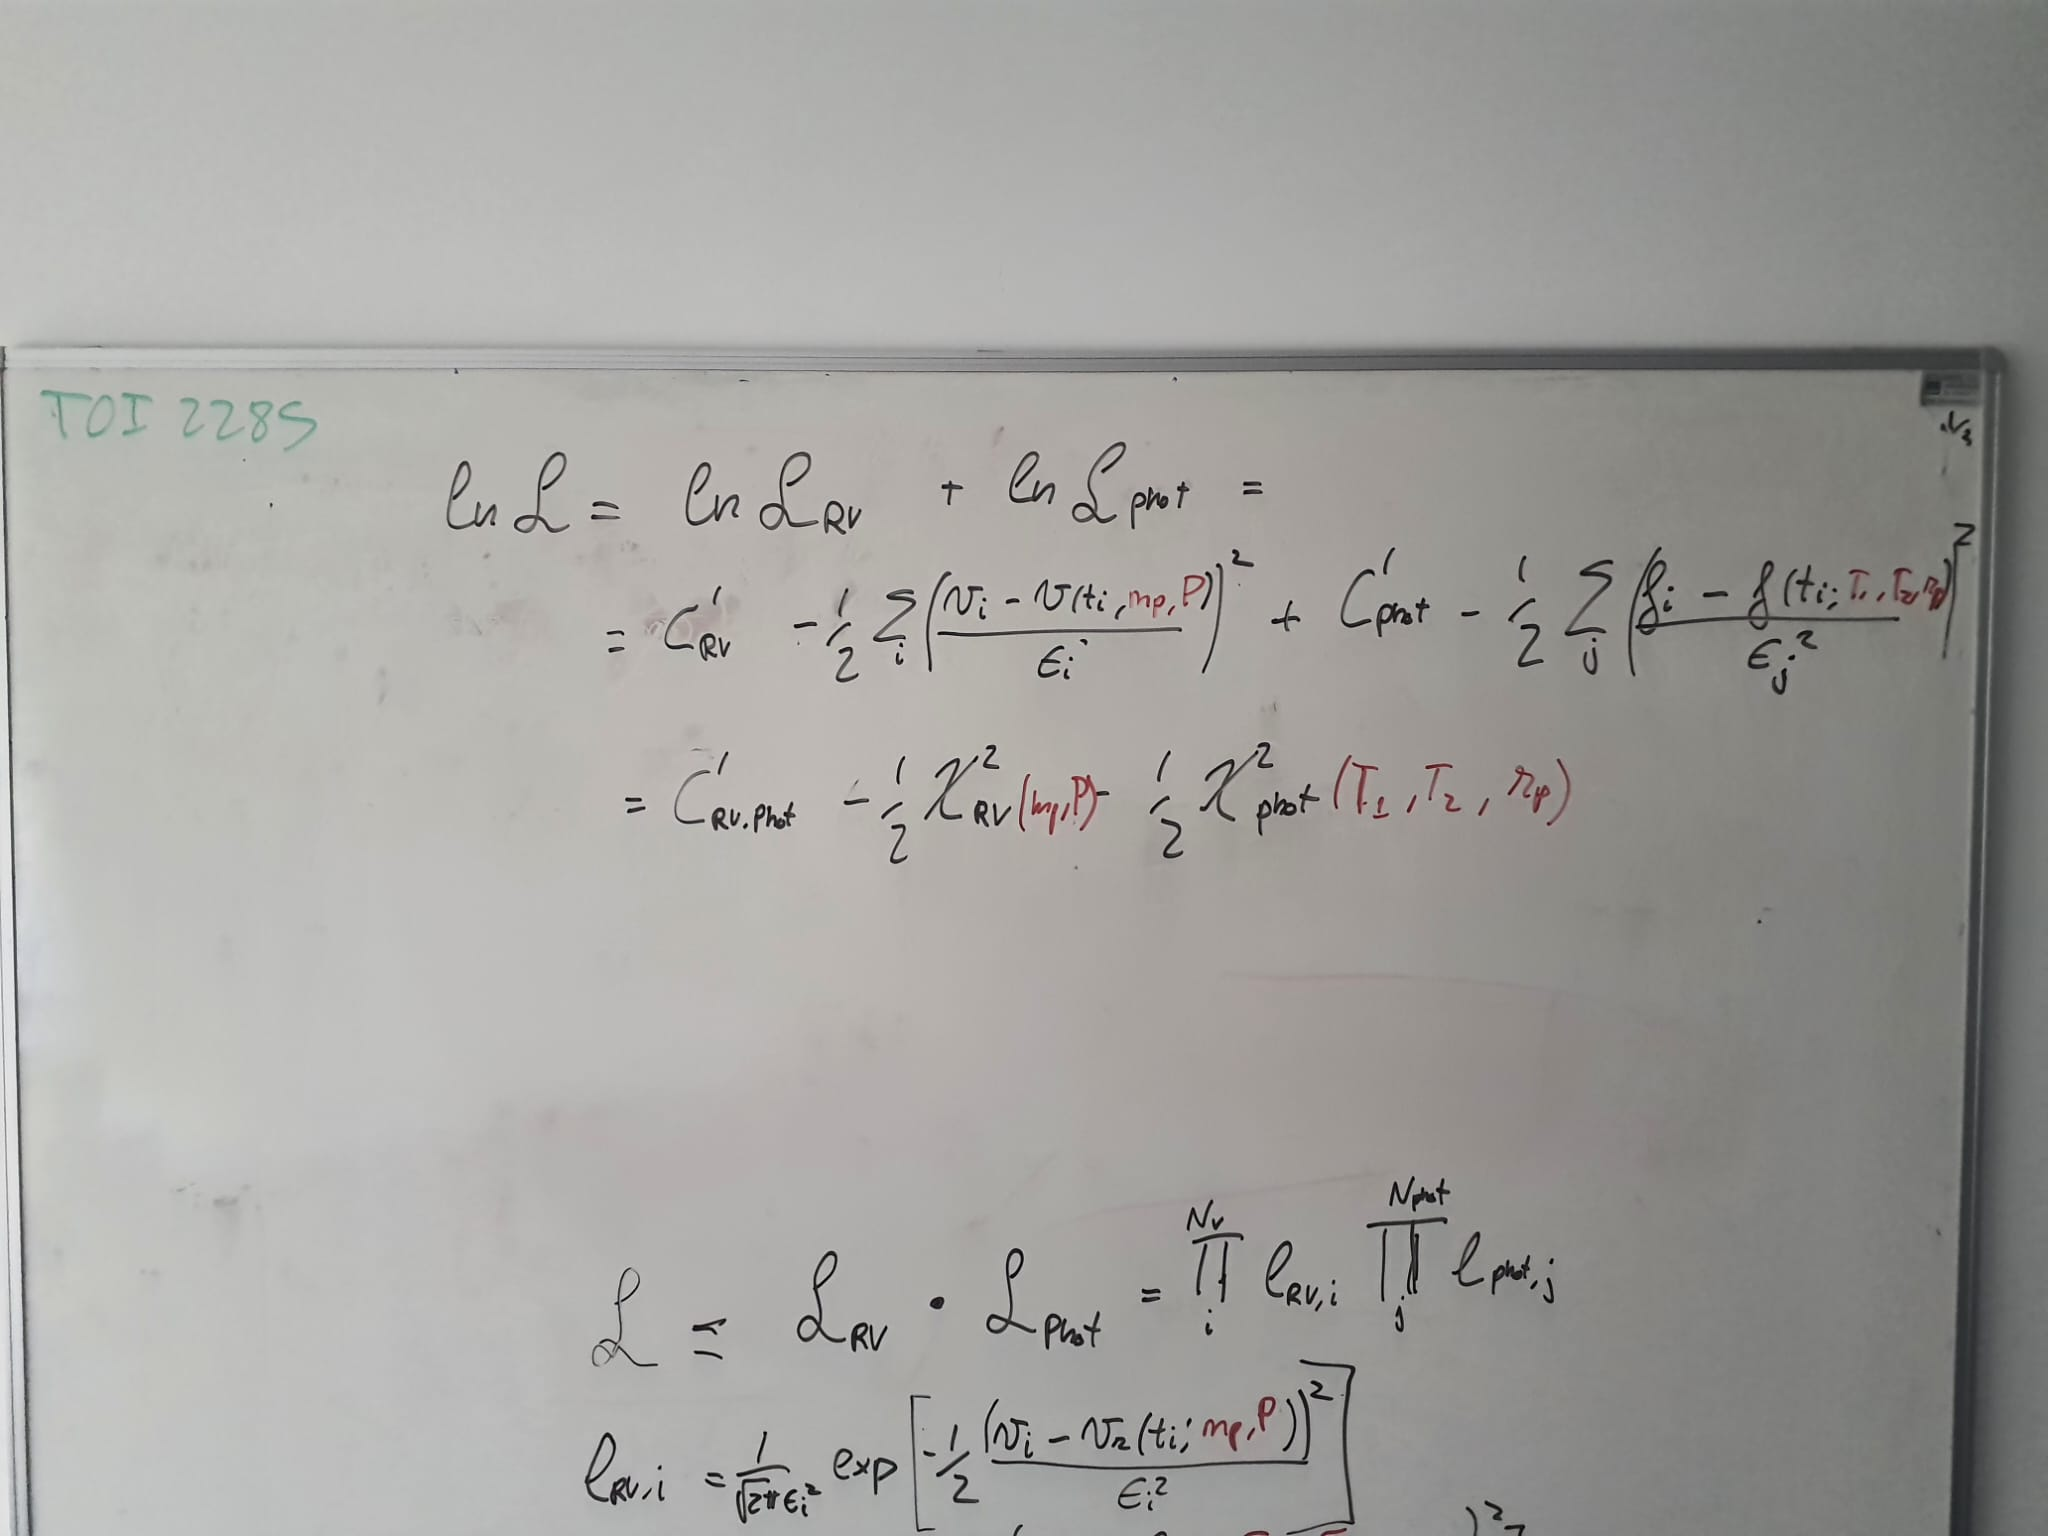 TOI 2285
ln ℒ = ln ℒ_RV + ln ℒ_phot =
= C'_RV - 1/2 Σ_i ((v_i - v(t_i, m_p, P))/ϵ_i)^2 + C'_phot - 1/2 Σ_j ((f_i - f(t_i; T_1, T_2, r_p))/ϵ_j^2)^2
= C'_RV.Phot - 1/2 χ^2_RV (m_p, P) - 1/2 χ^2_phot (T_1, T_2, r_p)
ℒ = ℒ_RV · ℒ_Phot = ∏_i^{N_v} ℓ_RV,i ∏_j^{N_phot} ℓ_phot,j
ℓ_RV,i = 1/√2π ϵ_i^2 exp [-1/2 (v_i - v_r(t_i; m_p, P))^2/ϵ_i^2]